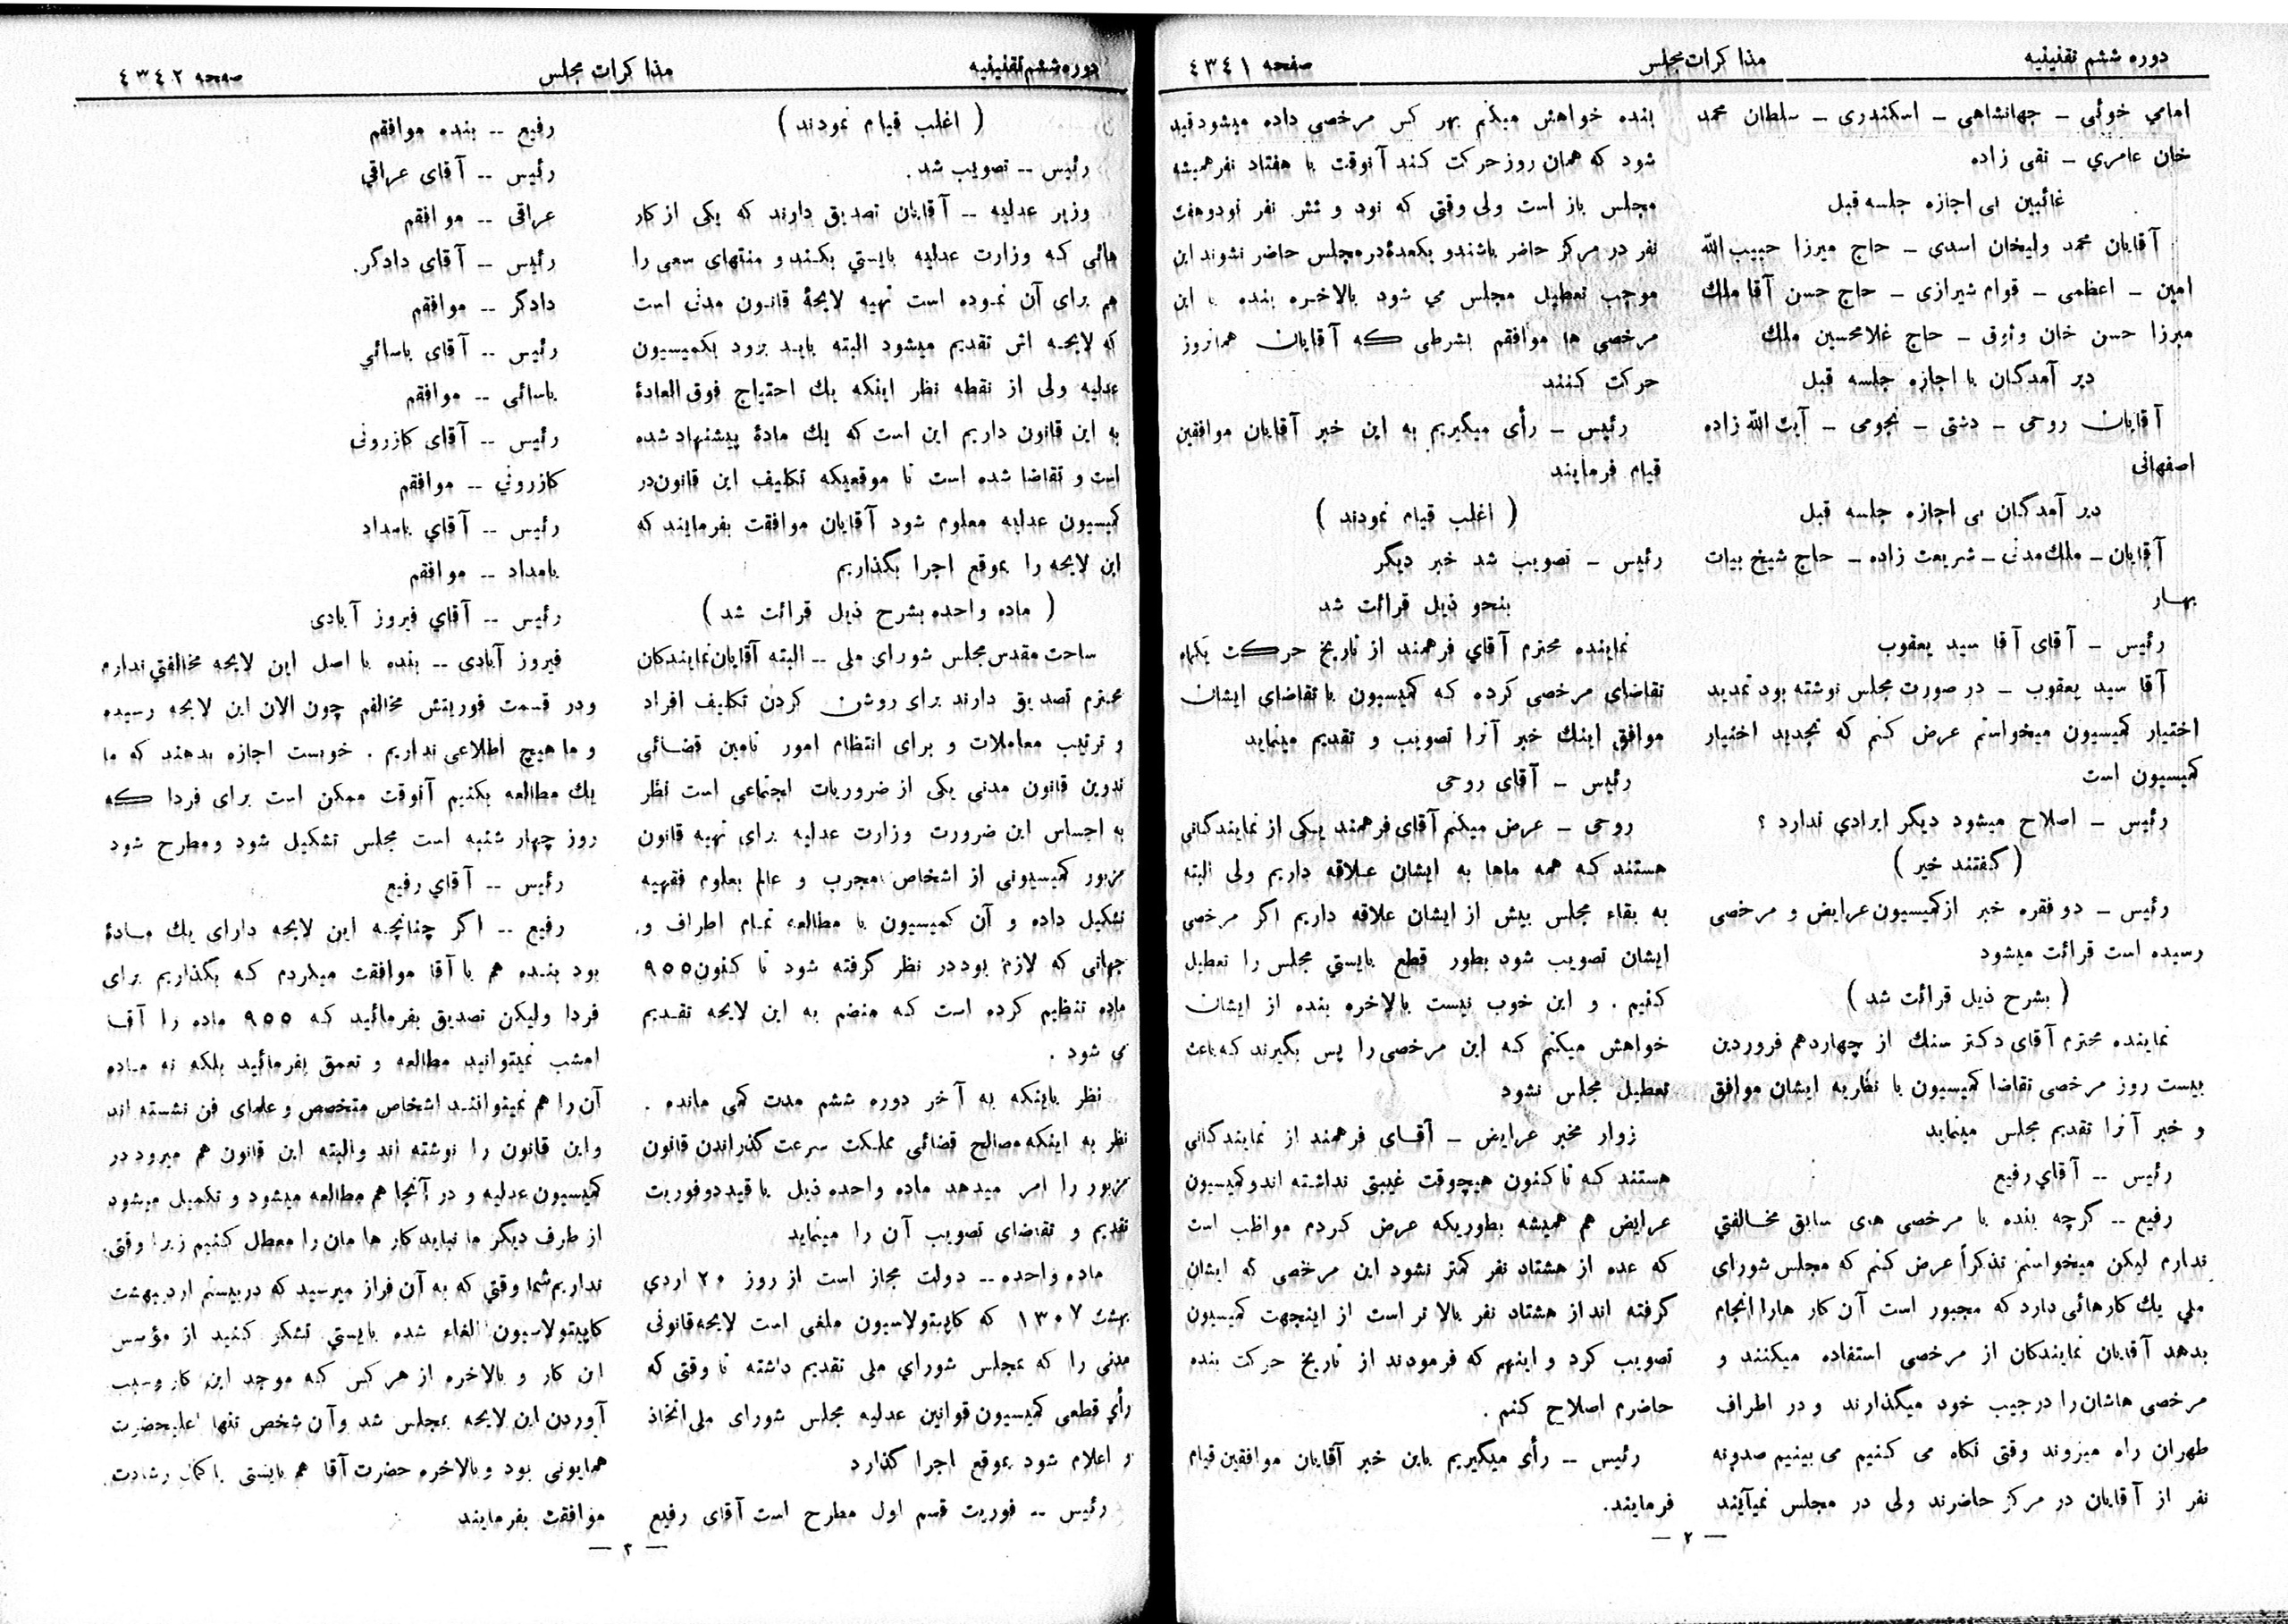 دوره ششم تقنینیه
مذاکرات مجلس
صفحه ٤٣٤١
امامي خوئی – جهانشاهی – اسکندری – سلطان محمد
خان عامري – تقی زاده
غائبین بی اجازه جلسه قبل
آقایان محمد ولیخان اسدی – حاج میرزا حبیب الله
امین – اعظمی – قوام شیرازی – حاج حسن آقا ملك
میرزا حسن خان وثوق – حاج غلامحسین ملك
دیر آمدگان با اجازه جلسه قبل
آقایان روحی – دشتی – نجومی – آیت الله زاده
اصفهانی
دیر آمدگان بی اجازه جلسه قبل
آقایان – ملك مدنی – شریعت زاده – حاج شیخ بیات
بهار
رئیس – آقای آقا سید یعقوب
آقا سید یعقوب – در صورت مجلس نوشته بود تمدید
اختیار کمیسیون میخواستم عرض کنم که تجدید اختیار
کمیسیون است
رئیس – اصلاح میشود دیگر ایرادي ندارد ؟
( گفتند خیر )
رئیس – دو فقره خبر از کمیسیون عرایض و مرخصی
رسیده است قرائت میشود
( بشرح ذیل قرائت شد )
نماینده محترم آقای دکتر سنك از چهاردهم فروردین
بیست روز مرخصی تقاضا کمیسیون با نظریه ایشان موافق
و خبر آنرا تقدیم مجلس مینماید
رئیس -- آقاي رفیع
رفیع -- گرچه بنده با مرخصی های سابق مخالفتي
ندارم لیکن میخواستم تذکراً عرض کنم که مجلس شورای
ملي یك کارهائی دارد که مجبور است آن کار هارا انجام
بدهد آقایان نمایندگان از مرخصی استفاده میکنند و
مرخصی هاشان را در جیب خود میگذارند و در اطراف
طهران راه میروند وقتی نگاه می کنیم می بینیم صدو نه
نفر از آقایان در مرکز حاضرند ولی در مجلس نمیآیند
بنده خواهش میکنم بهر کس مرخصی داده میشود قید
شود که همان روز حرکت کند آنوقت با هفتاد نفر همیشه
مجلس باز است ولی وقتي که نود و شش نفر نودوهفت
نفر در مرکز حاضر باشندو یکعدۀ در مجلس حاضر نشوند این
موجب تعطیل مجلس مي شود بالاخره بنده با این
مرخصی ها موافقم بشرطی که آقایان همانروز
حرکت کنند
رئیس – رأی میگیریم به این خبر آقایان موافقین
قیام فرمایند
( اغلب قیام نمودند )
رئیس – تصویب شد خبر دیگر
بنحو ذیل قرائت شد
نماینده محترم آقاي فرهمند از تاریخ حرکت یکماه
تقاضای مرخصی کرده که کمیسیون با تقاضای ایشان
موافق اینك خبر آنرا تصویب و تقدیم مینماید
رئیس – آقای روحی
روحی – عرض میکنم آقای فرهمند یکی از نمایندگانی
هستند که همه ماها به ایشان علاقه داریم ولی البته
به بقاء مجلس بیش از ایشان علاقه داریم اگر مرخصی
ایشان تصویب شود بطور قطع بایستي مجلس را تعطیل
کنیم . و این خوب نیست بالاخره بنده از ایشان
خواهش میکنم که این مرخصی را پس بگیرند که باعث
تعطیل مجلس نشود
زوار مخبر عرایض – آقای فرهمند از نمایندگانی
هستند که تا کنون هیچوقت غیبتی نداشته اند و کمیسیون
عرایض هم همیشه بطوریکه عرض کردم مواظب است
که عده از هشتاد نفر کمتر نشود این مرخصی که ایشان
گرفته اند از هشتاد نفر بالا تر است از اینجهت کمیسیون
تصویب کرد و اینهم که فرمودند از تاریخ حرکت بنده
حاضرم اصلاح کنم .
رئیس -- رأی میگیریم باین خبر آقایان موافقین قیام
فرمایند.
— ۲ —
دوره ششم تقنینیه
مذاکرات مجلس
صفحه ٤٣٤٢
( اغلب قیام نمودند )
رئیس -- تصویب شد .
وزیر عدلیه -- آقایان تصدیق دارند که یکی از کار
هائی که وزارت عدلیه بایستي بکند و منتهای سعی را
هم برای آن نموده است تهیه لایحۀ قانون مدنی است
که لایحه اش تقدیم میشود البته باید برود بکمیسیون
عدلیه ولی از نقطه نظر اینکه یك احتیاج فوق العادۀ
به این قانون داریم این است که یك مادۀ پیشنهاد شده
است و تقاضا شده است تا موقعیکه تکلیف این قانون در
کمیسیون عدلیه معلوم شود آقایان موافقت بفرمایند که
این لایحه را بموقع اجرا بگذاریم
( ماده واحده بشرح ذیل قرائت شد )
ساحت مقدس مجلس شورای ملی -- البته آقایان نمایندگان
محترم تصدیق دارند برای روشن کردن تکلیف افراد
و ترتیب معاملات و برای انتظام امور تامین قضائی
تدوین قانون مدنی یکی از ضروریات اجتماعی است نظر
به احساس این ضرورت وزارت عدلیه برای تهیه قانون
مزبور کمیسیونی از اشخاص مجرب و عالم بعلوم فقهیه
تشکیل داده و آن کمیسیون با مطالعه تمام اطراف و
جهاتی که لازم بود در نظر گرفته شود تا کنون ٩٥٥
ماده تنظیم کرده است که منضم به این لایحه تقدیم
می شود .
نظر باینکه به آخر دوره ششم مدت کمی مانده .
نظر به اینکه مصالح قضائی مملکت سرعت گذراندن قانون
مزبور را امر میدهد ماده واحده ذیل با قید دو فوریت
تقدیم و تقاضای تصویب آن را مینماید
ماده واحده -- دولت مجاز است از روز ۲۰ اردی
بهشت ۱۳۰۷ که کاپیتولاسیون ملغی است لایحه قانونی
مدنی را که بمجلس شورای ملی تقدیم داشته تا وقتی که
رأی قطعی کمیسیون قوانین عدلیه مجلس شورای ملی اتخاذ
و اعلام شود بموقع اجرا گذارد
رئیس -- فوریت قسم اول مطرح است آقای رفیع
رفیع -- بنده موافقم
رئیس -- آقای عراقي
عراقی -- موافقم
رئیس -- آقای دادگر.
دادگر -- موافقم
رئیس -- آقای یاسائي
یاسائی -- موافقم
رئیس -- آقای کازرونی
کازرونی -- موافقم
رئیس -- آقاي بامداد
بامداد -- موافقم
رئیس -- آقاي فیروز آبادی
فیروز آبادی -- بنده با اصل این لایحه مخالفتي ندارم
ودر قسمت فوریتش مخالفم چون الان این لایحه رسیده
و ما هیچ اطلاعی نداریم . خوبست اجازه بدهند که ما
یك مطالعه بکنیم آنوقت ممکن است برای فردا که
روز چهار شنبه است مجلس تشکیل شود ومطرح شود
رئیس -- آقاي رفیع
رفیع -- اگر چنانچه این لایحه دارای یك مادۀ
بود بنده هم با آقا موافقت میکردم که بگذاریم برای
فردا ولیکن تصدیق بفرمائید که ٩٥٥ ماده را آقا
امشب نمیتوانید مطالعه و تعمق بفرمائید بلکه نه ماده
آن را هم نمیتوانند اشخاص متخصص و علمای فن نشسته اند
واین قانون را نوشته اند والبته این قانون هم میرود در
کمیسیون عدلیه و در آنجا هم مطالعه میشود و تکمیل میشود
از طرف دیگر ما نباید کار ها مان را معطل کنیم زیرا وقتی
نداریم شما وقتي که به آن فراز میرسید که در بیستم اردیبهشت
کاپیتولاسیون الغاء شده بایستي تشکر کنید از مؤسس
این کار و بالاخره از هر کس که موجد این کار وسبب
آوردن این لایحه بمجلس شد وآن شخص تنها اعلیحضرت
همایونی بود وبالاخره حضرت آقا هم بایستی با کمال رشادت
موافقت بفرمایند
— ۳ —